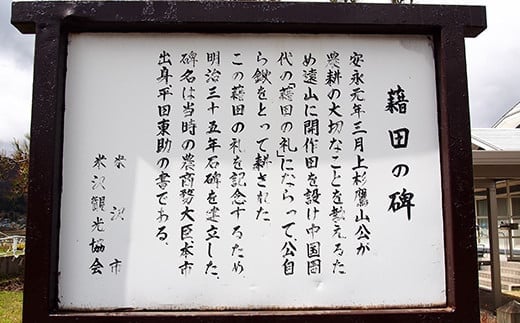 藉田の碑
安永元年三月上杉鷹山公が
農耕の大切なことを教えるた
め遠山に開作田を設け中国周
代の「藉田の礼」にならって、公自
ら鍬をとって耕された。
この藉田の礼を記念するため、
明治三十五年石碑を建立した。
碑名は当時の農商務大臣本市
出身平田東助の書である。
米沢市
米沢観光協会